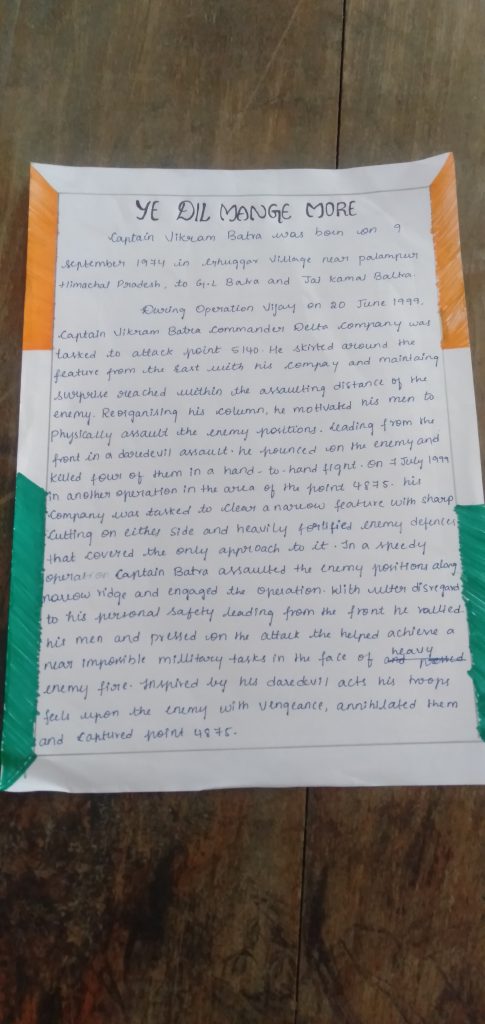 YE DIL MANGE MORE
Captain Vikram Batra was born on 9
September 1974 in Ghuggar Village near palampur
Himachal Pradesh, to G.L Batra and Jai Kamal Batra.
During Operation Vijay on 20 June 1999,
Captain Vikram Batra Commander Delta Company was
tasked to attack point 5140. He skirted around the
feature from the East with his compay and maintaing
surprise reached within the assaulting distance of the
enemy. Reorganising his column, he motivated his men to
Physically assault the enemy positions. Leading from the
front in a daredevil assault. he pounced on the enemy and
killed four of them in a hand-to-hand fignt. On 7 July 1999
in another operation in the area of the point 4875. his
Company was tasked to clear a narrow feature with sharp
Cutting on either side and heavily fortified enemy defences
that covered the only approach to it. In a speedy
operation Captain Batra assaulted the enemy positions along
narrow ridge and engaged the operation. With utter disregard
to his personal safety leading from the front he rallied
his men and pressed on the attack the helped achieve a
near imposible millitary tasks in the face of heavy
enemy fire. Inspired by his daredevil acts his troops
feels upon the enemy with vengeance, annihilated them
and captured point 4875.